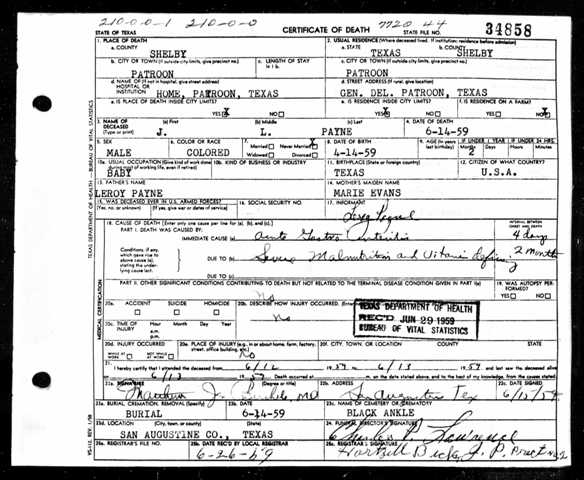 210-0-0-1 210-0-0 7720 44
STATE OF TEXAS CERTIFICATE OF DEATH STATE FILE NO. 34858
1. PLACE OF DEATH 2. USUAL RESIDENCE (Where deceased lived. If institution: residence before admission)
a. COUNTY SHELBY a. STATE TEXAS b. COUNTY SHELBY
b. CITY OR TOWN (If outside city limits, give precinct no.) c. LENGTH OF STAY in 1 b. c. CITY OR TOWN (If outside city limits, give precinct no.)
PATROON PATROON
d. NAME OF (If not in hospital, give street address) HOSPITAL OR INSTITUTION d. STREET ADDRESS (If rural, give location)
HOME, PATROON, TEXAS GEN. DEL. PATROON, TEXAS
e. IS PLACE OF DEATH INSIDE CITY LIMITS? e. IS RESIDENCE INSIDE CITY LIMITS? f. IS RESIDENCE ON A FARM?
YES NO YES NO YES NO
3. NAME OF DECEASED (Type or print) (a) First (b) Middle (c) Last 4. DATE OF DEATH
J. L. PAYNE 6-14-59
5. SEX 6. COLOR OR RACE 7. Married Never Married Widowed Divorced 8. DATE OF BIRTH 9. AGE (In years last birthday) IF UNDER 1 YEAR Months Days IF UNDER 24 HRS. Hours Min.
MALE COLORED 4-14-59 2
10a. USUAL OCCUPATION (Give kind of work done during most of working life, even if retired) 10b. KIND OF BUSINESS OR INDUSTRY 11. BIRTHPLACE (State or foreign country) 12. CITIZEN OF WHAT COUNTRY?
BABY TEXAS U.S.A.
13. FATHER'S NAME 14. MOTHER'S MAIDEN NAME
LEROY PAYNE MARIE EVANS
15. WAS DECEASED EVER IN U.S. ARMED FORCES? (Yes, no, or unknown) (If yes, give war or dates of service) 16. SOCIAL SECURITY NO. 17. INFORMANT
18. CAUSE OF DEATH (Enter only one cause per line for (a), (b), and (c).) INTERVAL BETWEEN ONSET AND DEATH
PART I. DEATH WAS CAUSED BY:
IMMEDIATE CAUSE (a) Acute Gastro Enteritis 4 days
Conditions, if any, which gave rise to above cause (a), stating the underlying cause last.
DUE TO (b) Severe Malnutrition and Vitamin deficiency 2 months
DUE TO (c)
PART II. OTHER SIGNIFICANT CONDITIONS CONTRIBUTING TO DEATH BUT NOT RELATED TO THE TERMINAL DISEASE CONDITION GIVEN IN PART I(a) 19. WAS AUTOPSY PERFORMED?
No YES NO
20a. ACCIDENT SUICIDE HOMICIDE 20b. DESCRIBE HOW INJURY OCCURRED.
No
20c. TIME OF INJURY Hour a.m. p.m. Month Day Year
TEXAS DEPARTMENT OF HEALTH
REC'D JUN 29 1959
BUREAU OF VITAL STATISTICS
20d. INJURY OCCURRED WHILE AT WORK NOT WHILE AT WORK 20e. PLACE OF INJURY (e.g., in or about home, farm, factory, street, office building, etc.) 20f. CITY, TOWN, OR LOCATION COUNTY STATE
No
21. I hereby certify that I attended the deceased from 6/12 1959 to 6/13 1959 and last saw the deceased alive
on 6/13 1959 Death occurred at m. on the date stated above, and to the best of my knowledge, from the causes stated.
22a. SIGNATURE (Degree or title) 22b. ADDRESS 22c. DATE SIGNED
San Augustine Tex
23a. BURIAL, CREMATION, REMOVAL (Specify) 23b. DATE 23c. NAME OF CEMETERY OR CREMATORY
BURIAL 6-14-59 BLACK ANKLE
23d. LOCATION (City, town, or county) (State) 24. FUNERAL DIRECTOR'S SIGNATURE
SAN AUGUSTINE CO., TEXAS
25a. REGISTRAR'S FILE NO. 25b. DATE REC'D BY LOCAL REGISTRAR 25c. REGISTRAR'S SIGNATURE
6-26-59
TEXAS DEPARTMENT OF HEALTH—BUREAU OF VITAL STATISTICS
MEDICAL CERTIFICATION
VS-112, REV. 1/58